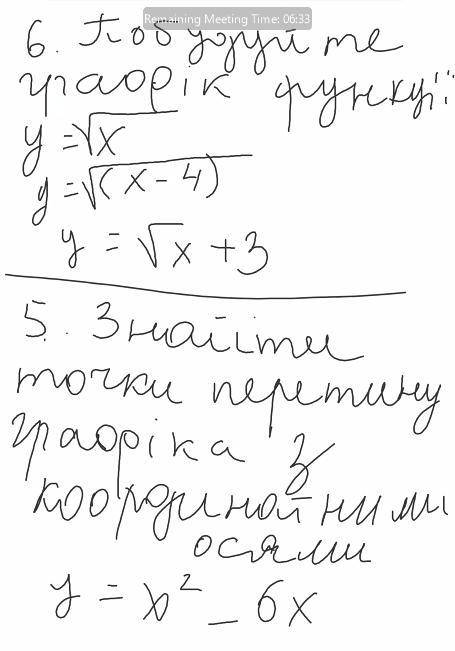 Remaining Meeting Time: 06:33
6. Побудуйте
графік функції:
y = √x
y = √(x - 4)
y = √x + 3
5. Знайти
точки перетину
графіка з
координатними
осями
y = x² - 6x